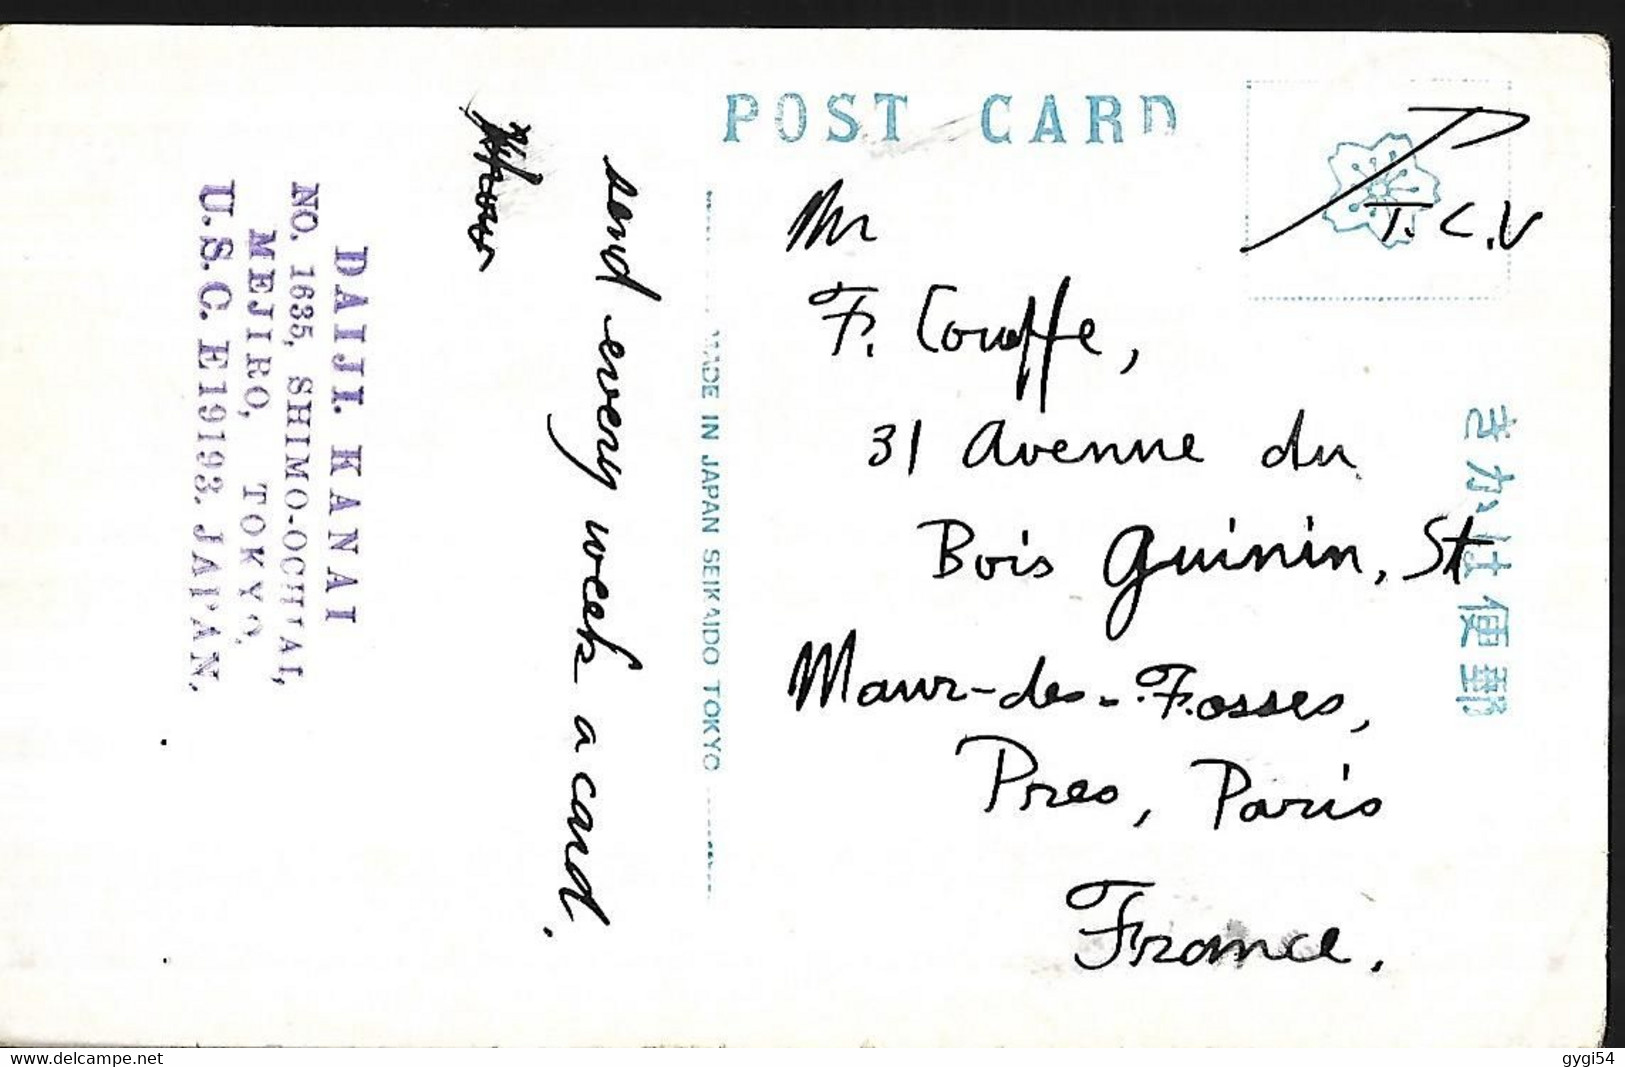 POST CARD
T.C.V
Mr
F. Couffe,
31 Avenue du
Bois Guinin, St
Maur-des-Fosses,
Pres, Paris
France.
きがは便郵
MADE IN JAPAN SEIKAIDO TOKYO
send every week a card.
DAIJI. KANAI
NO. 1635, SHIMO-OCHIAI,
MEJIRO, TOKYO,
U.S.C. E19193, JAPAN.
delcampe.net
gygi54